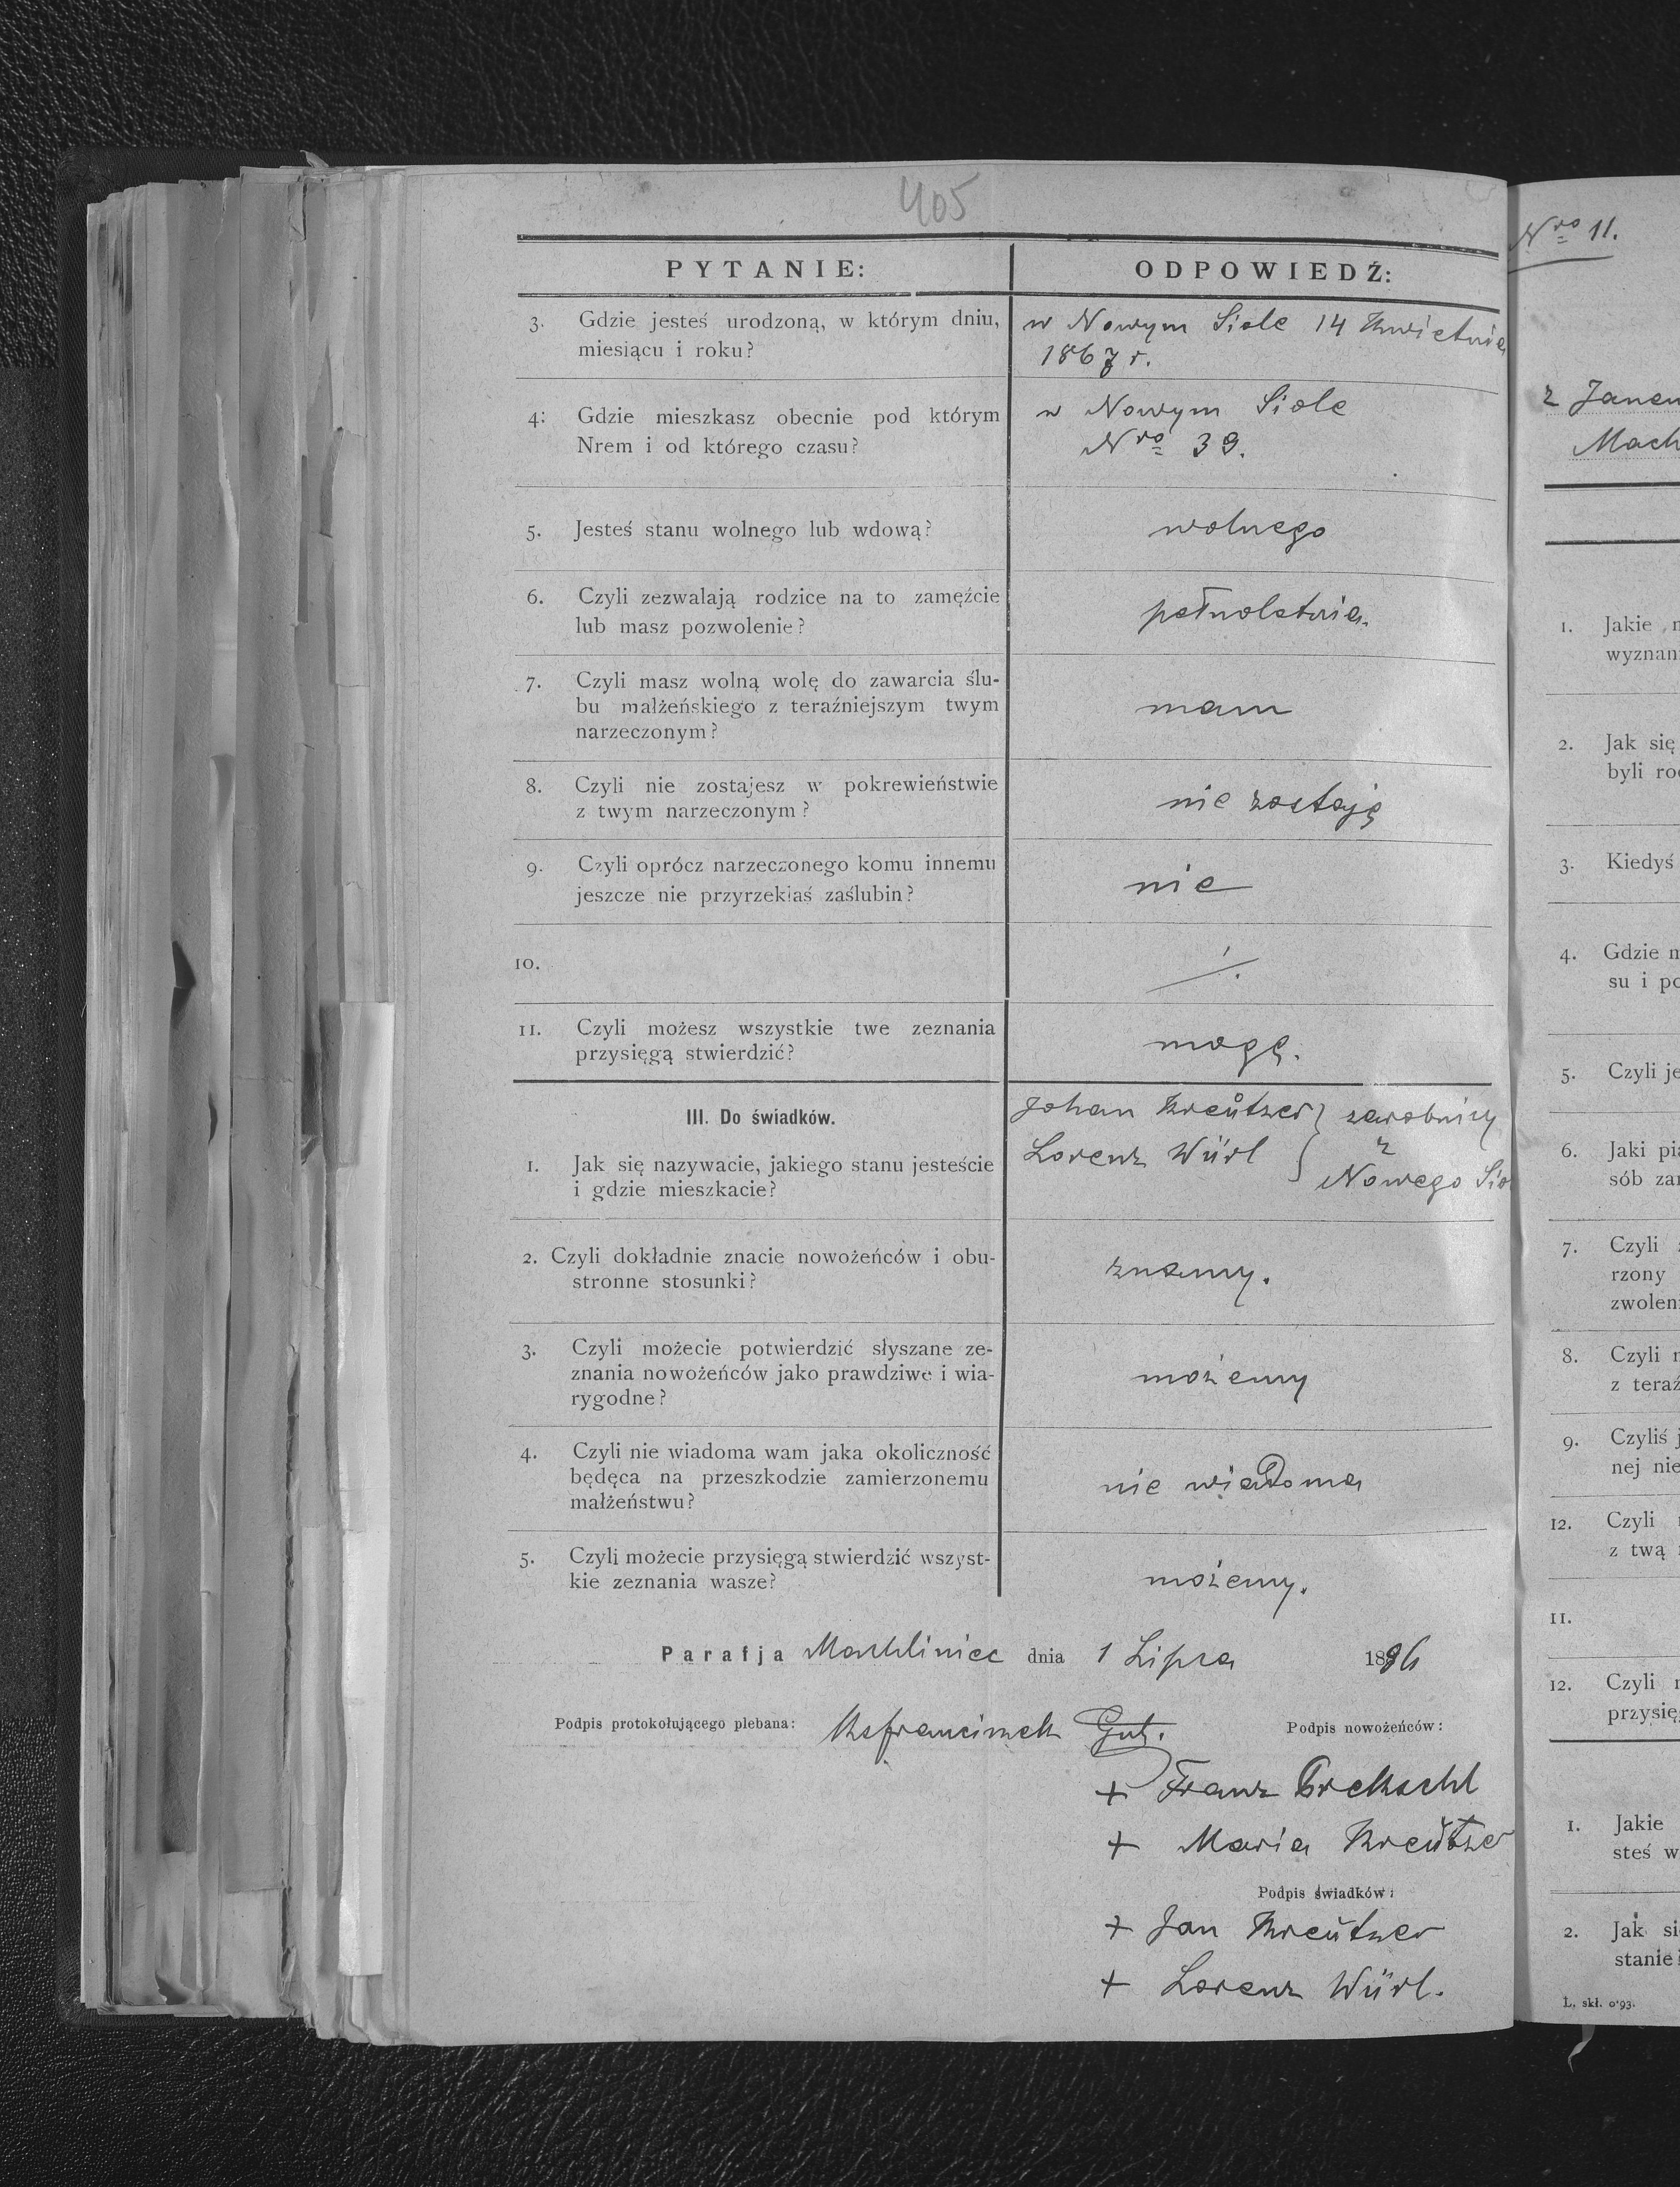 405
PYTANIE: ODPOWIEDŹ:
3. Gdzie jesteś urodzoną, w którym dniu,
miesiącu i roku?
w Nowym Siole 14 Kwietnia
1867 r.
4. Gdzie mieszkasz obecnie pod którym
Nrem i od którego czasu?
w Nowym Siole
Nro 39.
5. Jesteś stanu wolnego lub wdową?
wolnego
6. Czyli zezwalają rodzice na to zamęźcie
lub masz pozwolenie?
pełnoletnia
7. Czyli masz wolną wolę do zawarcia ślu-
bu małżeńskiego z teraźniejszym twym
narzeczonym?
mam
8. Czyli nie zostajesz w pokrewieństwie
z twym narzeczonym?
nie zostaję
9. Czyli oprócz narzeczonego komu innemu
jeszcze nie przyrzekłaś zaślubin?
nie
10.
11. Czyli możesz wszystkie twe zeznania
przysięgą stwierdzić?
mogę.
III. Do świadków.
1. Jak się nazywacie, jakiego stanu jesteście
i gdzie mieszkacie?
Johan Kreŭtzer } zarobnicy
Lorenz Würl } z
Nowego Sio
2. Czyli dokładnie znacie nowożeńców i obu-
stronne stosunki?
znamy.
3. Czyli możecie potwierdzić słyszane ze-
znania nowożeńców jako prawdziwe i wia-
rygodne?
możemy
4. Czyli nie wiadoma wam jaka okoliczność
będęca na przeszkodzie zamierzonemu
małżeństwu?
nie wiadoma
5. Czyli możecie przysięgą stwierdzić wszyst-
kie zeznania wasze?
możemy.
Parafja Machliniec dnia 1 Lipca 1896
Podpis protokołującego plebana: Ksfranciszek Podpis nowożeńców:
+ Franz
+ Maria Kreŭtzer
Podpis świadków:
+ Jan Kreŭtzer
+ Lorenz Würl.
Nro 11.
z Janem
Mach
1. Jakie
wyznan
2. Jak się
byli
3. Kiedyś
4. Gdzie
su i
5. Czyli
6. Jaki
sób
7. Czyli
rzony
8. Czyli
z
9. Czyliś
nej
12. Czyli
z twą
11.
12. Czyli
1. Jakie
steś
2. Jak
L. skł. 0·93.